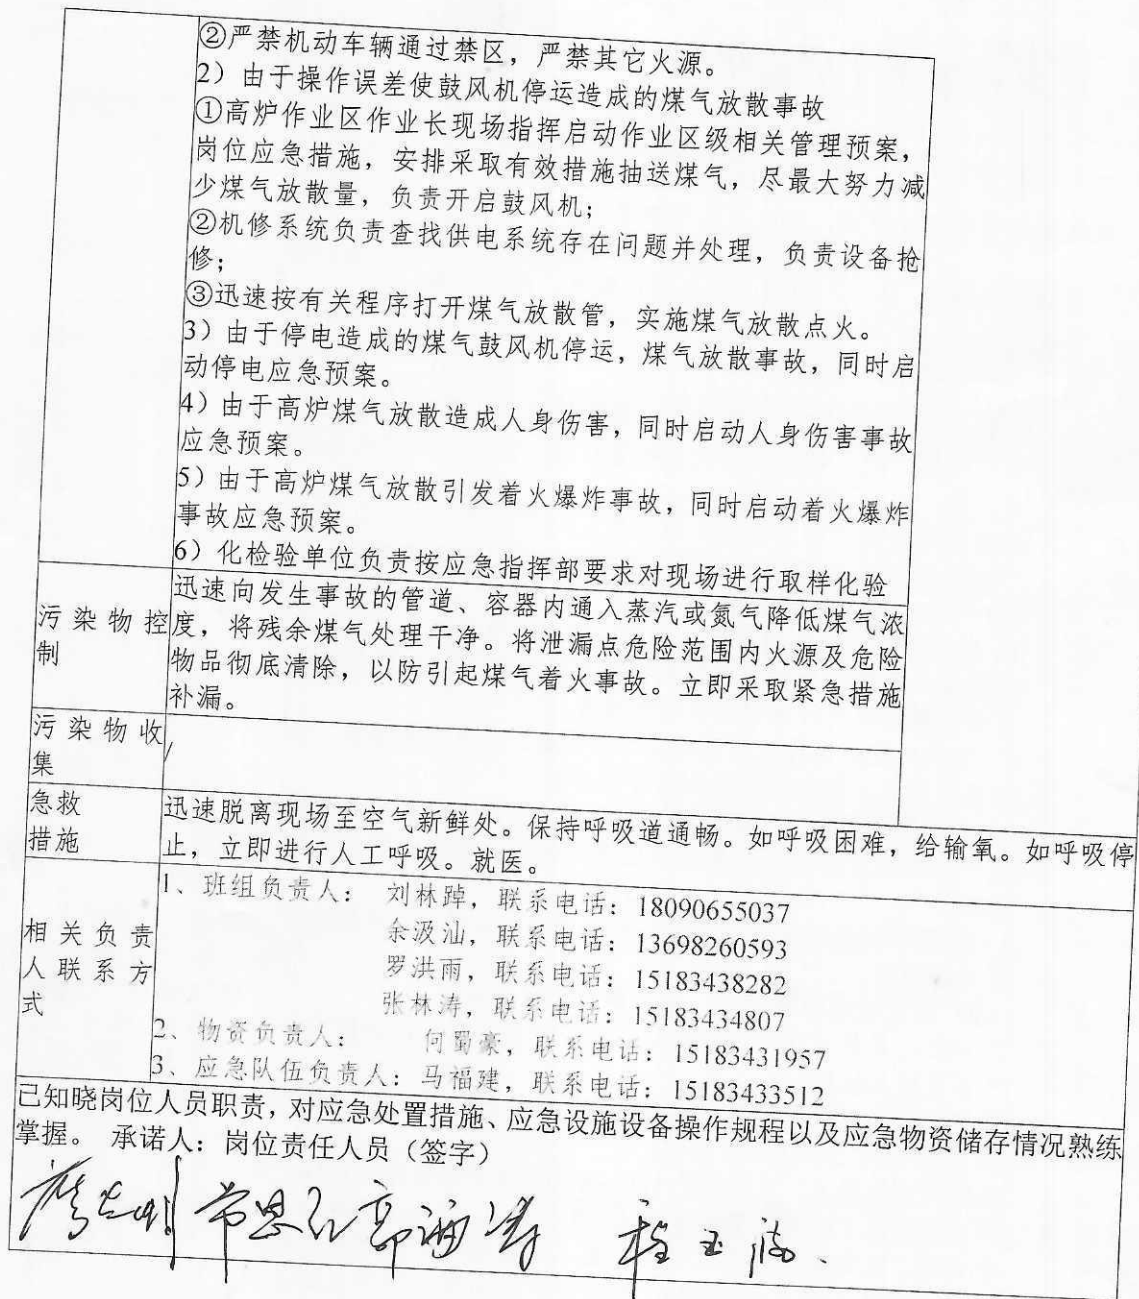 ②严禁机动车辆通过禁区，严禁其它火源。
2）由于操作误差使鼓风机停运造成的煤气放散事故
①高炉作业区作业长现场指挥启动作业区级相关管理预案，
岗位应急措施，安排采取有效措施抽送煤气，尽最大努力减
少煤气放散量，负责开启鼓风机；
②机修系统负责查找供电系统存在问题并处理，负责设备抢
修；
③迅速按有关程序打开煤气放散管，实施煤气放散点火。
3）由于停电造成的煤气鼓风机停运，煤气放散事故，同时启
动停电应急预案。
4）由于高炉煤气放散造成人身伤害，同时启动人身伤害事故
应急预案。
5）由于高炉煤气放散引发着火爆炸事故，同时启动着火爆炸
事故应急预案。
6）化检验单位负责按应急指挥部要求对现场进行取样化验
污染物控
制
迅速向发生事故的管道、容器内通入蒸汽或氮气降低煤气浓
度，将残余煤气处理干净。将泄漏点危险范围内火源及危险
物品彻底清除，以防引起煤气着火事故。立即采取紧急措施
补漏。
污染物收
集
/
急救
措施
迅速脱离现场至空气新鲜处。保持呼吸道通畅。如呼吸困难，给输氧。如呼吸停
止，立即进行人工呼吸。就医。
相关负责
人联系方
式
1、班组负责人： 刘林踔，联系电话：18090655037
余汲汕，联系电话：13698260593
罗洪雨，联系电话：15183438282
张林涛，联系电话：15183434807
2、物资负责人： 何蜀豪，联系电话：15183431957
3、应急队伍负责人：马福建，联系电话：15183433512
已知晓岗位人员职责，对应急处置措施、应急设施设备操作规程以及应急物资储存情况熟练
掌握。 承诺人：岗位责任人员（签字）